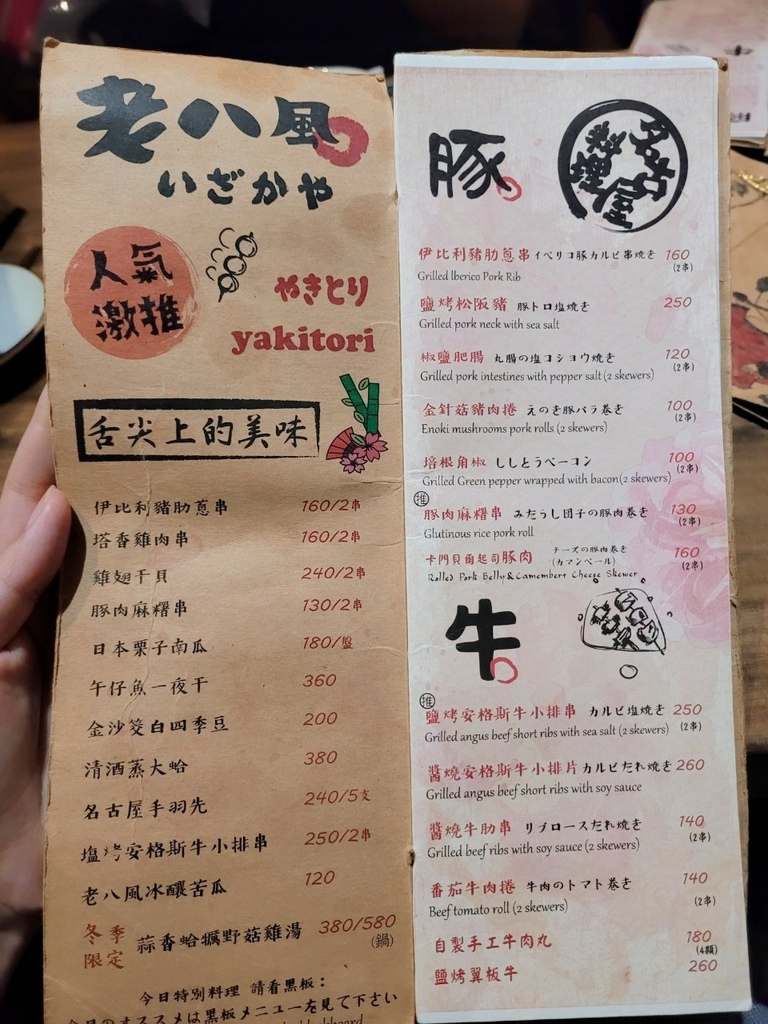 老八風
いざかや
人氣
激推
やきとり
yakitori
舌尖上的美味
伊比利豬肋蔥串 160/2串
塔香雞肉串 160/2串
雞翅干貝 240/2串
豚肉麻糬串 130/2串
日本栗子南瓜 180/盤
午仔魚一夜干 360
金沙筊白四季豆 200
清酒蒸大蛤 380
名古屋手羽先 240/5支
塩烤安格斯牛小排串 250/2串
老八風冰釀苦瓜 120
冬季
限定
蒜香蛤蠣野菇雞湯 380/580
(鍋)
今日特別料理 請看黑板：
今日のオススメは黒板メニューを見て下さい
豚
名古屋
料理
伊比利豬肋蔥串 イベリコ豚カルビ串焼き 160
(2串)
Grilled Iberico Pork Rib
鹽烤松阪豬 豚トロ塩焼き 250
Grilled pork neck with sea salt
椒鹽肥腸 丸腸の塩コショウ焼き 120
Grilled pork intestines with pepper salt (2 skewers) (2串)
金針菇豬肉捲 えのき豚バラ巻き 100
Enoki mushrooms pork rolls (2 skewers) (2串)
培根角椒 ししとうベーコン 100
Grilled Green pepper wrapped with bacon (2 skewers) (2串)
推
豚肉麻糬串 みたらし団子の豚肉巻き 130
Glutinous rice pork roll (2串)
卡門貝爾起司豚肉 チーズの豚肉巻き (カマンベール) 160
Rolled Pork Belly & Camembert Cheese Skewer (2串)
牛
推
鹽烤安格斯牛小排串 カルビ塩焼き 250
Grilled angus beef short ribs with sea salt (2 skewers) (2串)
醬燒安格斯牛小排片 カルビだれ焼き 260
Grilled angus beef short ribs with soy sauce
醬燒牛肋串 リブロースだれ焼き 140
Grilled beef ribs with soy sauce (2 skewers) (2串)
番茄牛肉捲 牛肉のトマト巻き 140
Beef tomato roll (2 skewers) (2串)
自製手工牛肉丸 180
(4顆)
鹽烤翼板牛 260